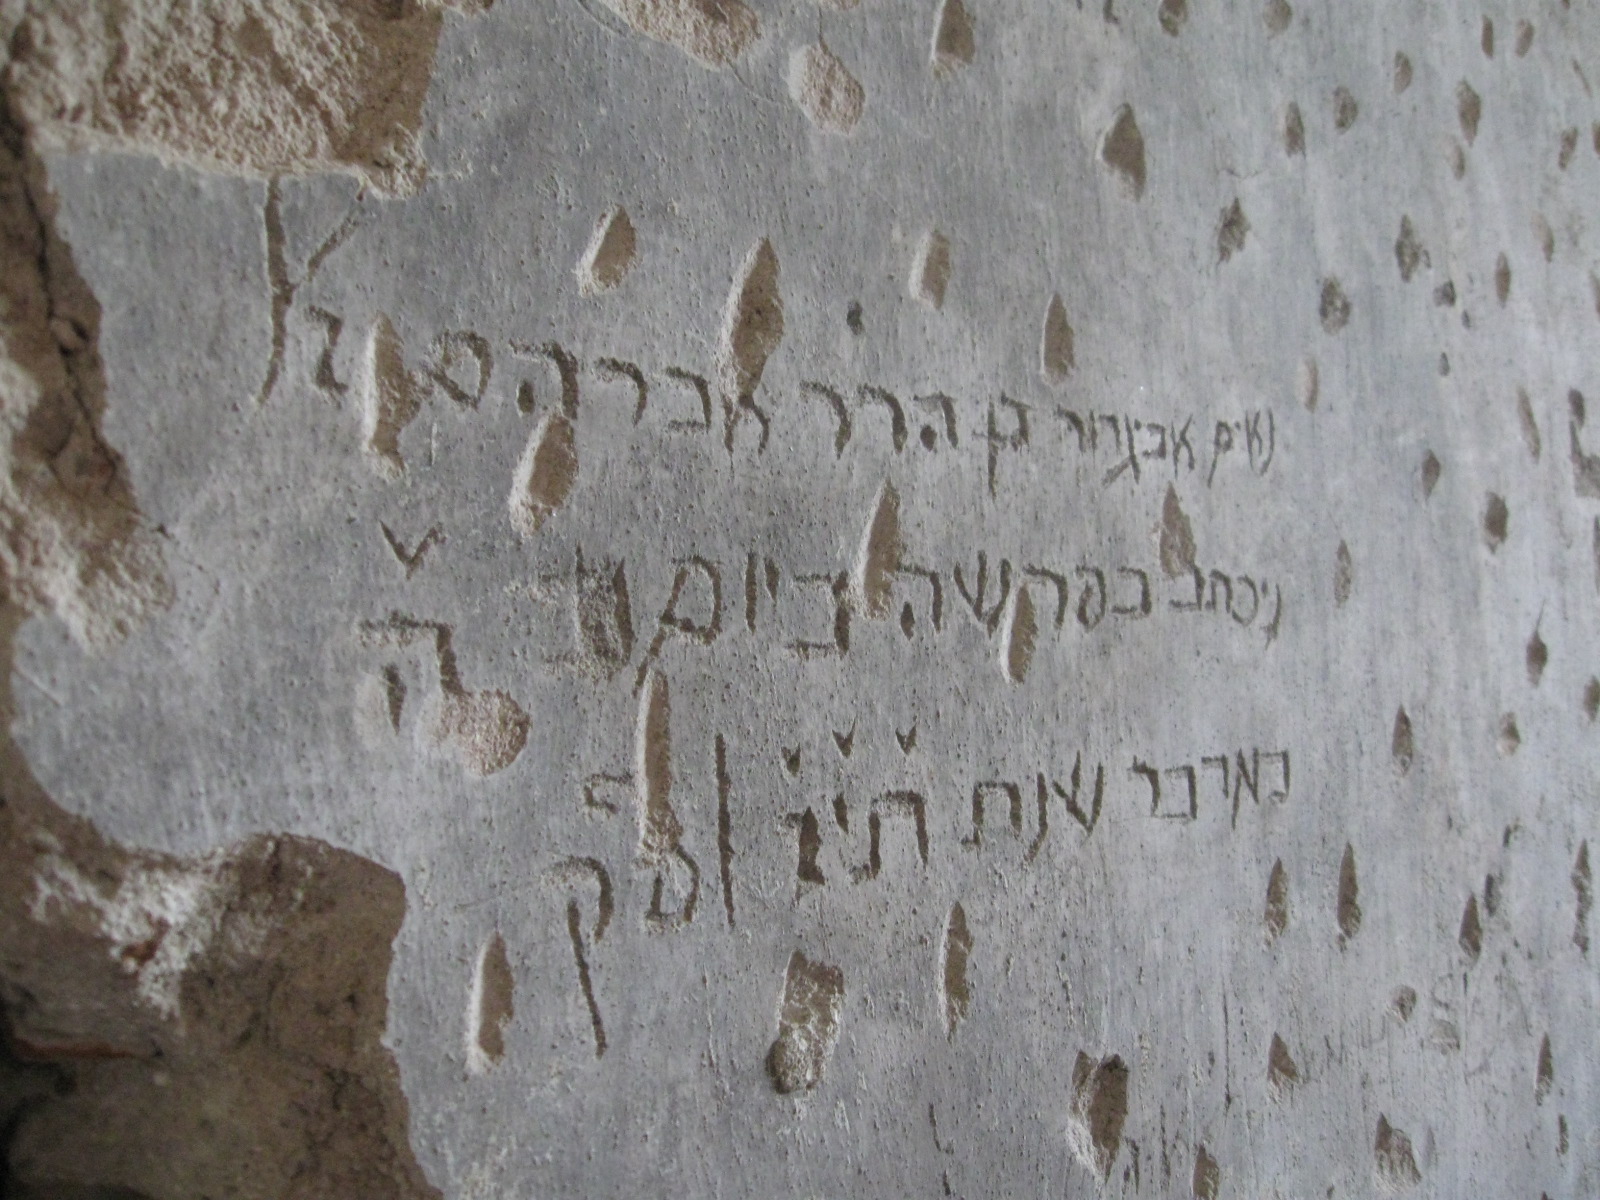 נאים אביגדור בן הרר אברהם כץ
ניכתב בפרשה ביום ב ה
במדבר שנת תיג לפק